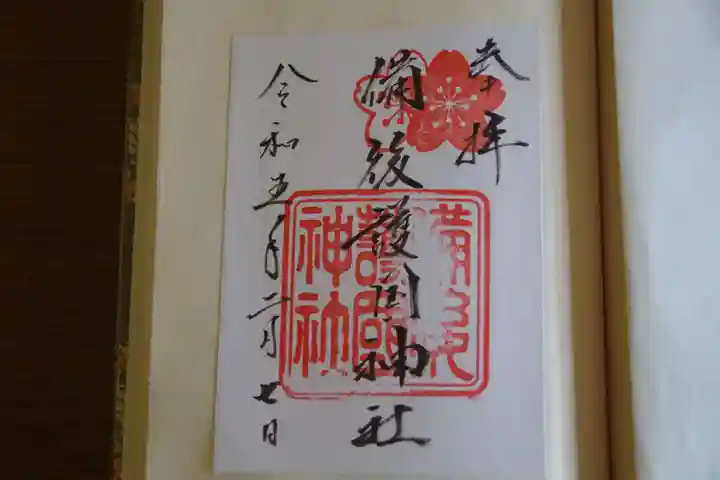 奉拝
備後護国神社
備後
護國
神社
令和五年二月七日